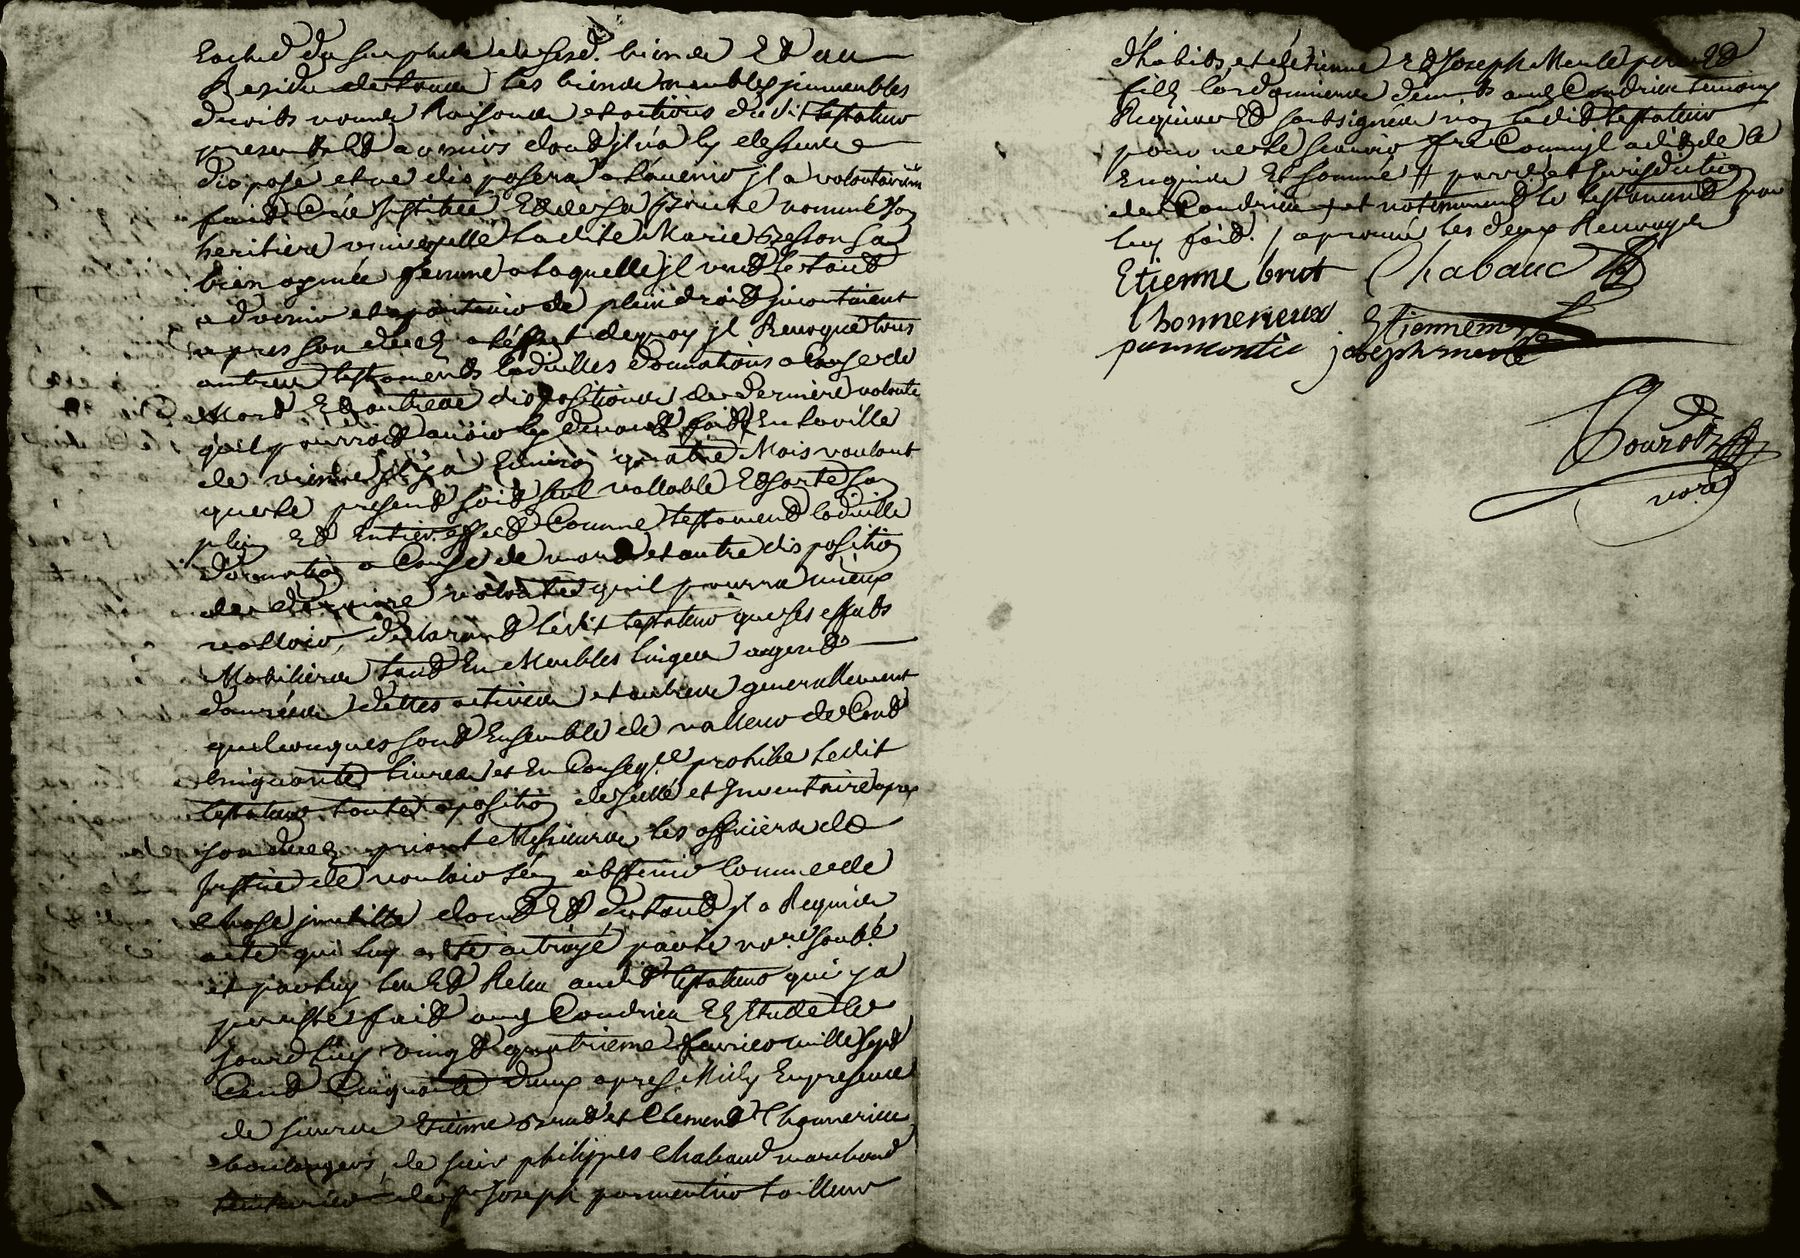 du surplus de sesd. biens Et au
Residu de tous les biens meubles jmmeubles
droits noms Raisons et actions dudit testateur
presents Et avenirs dont jl n'a cy dessus
dispose et ne disposera a l'avenir jl a volontairem
fait Cree Jnstitue Et de sa bouche nommé Son
heritiere universelle Laditte Marie Besson Sa
bien aymée femme a laquelle jl veut le tout
advenir et apartenir de plein droit jncontinent
apres son deces a l'effet de quoy jl Revoque tous
autres testaments Codicilles donnations a Cause de
Mort Et autres dispositions de derniere volonté
qu'il pourroit avoir cy devant fait En la ville
de vienne jl y a Environ quatre Mois voulant
que le present soit seul vallable Et sorte Son
plein Et Entier effect Comme testament Codicille
donnation a Cause de mort et autre disposition
de derniere volonté qu'il pourra mieux
valloir, declarant ledit testateur que ses effets
Mobiliers tant En Meubles linges argent
danrées dettes actives et autres generallement
quelconques sont Ensemble de valleur de Cent
cinquante livres et En Conseq.ce prohibe ledit
testateur toutes aposition de scellé et Jnventaire apres
son deces priant Messieurs les officiers de
Justice de vouloir s'en abstenir Comme de
chose jnutille dont Et du tout jl a Requis
acte qui luy a été octroyé par le no.re soub.é
et par luy leu Et Releu audit testateur qui y a
persisté fait aud Condrieu En Etude Ce
jourd'huy vingt quatrieme fevrier mille sept
Cent Cinquante deux apres Midy En presence
de sieurs Etienne Brut et Clement Lhonnerieux
boulangers, de sieur philippes Chabaud marchand
de sr Joseph parmentier tailleur
d'habits et de Etienne Et Joseph Merle pere Et
fils Cordonniers dem.ts aud Condrieu temoins
Requis Et soubsignés non ledit testateur
pour ne le scavoir faire Comm'jl a dit de ce
Enquis Et sommé
de Condrieu et notamment le testament par
luy fait. / aprouvé les deux Renvoyes
Etienne brut Chabaud
lhonnerieux Etienne m
parmentier joseph merle
no.re